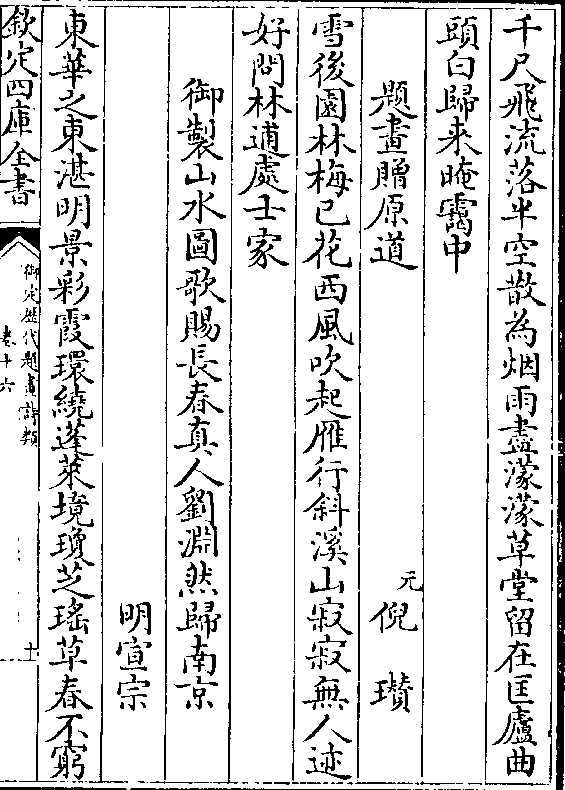 千尺飛流落半空散為烟雨盡濛濛草堂留在匡廬曲
頭白歸来晻靄中
題畫贈原道
元倪瓚
雪後園林梅已花西風吹起雁行斜溪山寂寂無人迹
好問林逋處士家
御製山水圖歌賜長春真人劉淵然歸南京
明宣宗
東華之東湛明景彩霞環繞蓬萊境瓊芝瑤草春不窮
欽定四庫全書
御定歷代題畫詩類
卷十六
十一